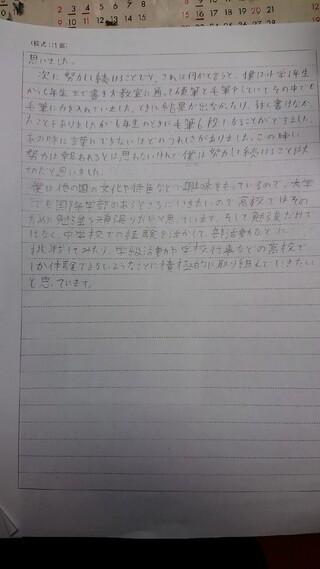 (様式1裏)
思いました。
次に努力し続けることです。これは何かと言うと、僕は小学1年生
から6年生まで書き方教室に通って硬筆と毛筆をしていてその中でも
毛筆に力を入れていました。ときに結果が出なかったり、上手く書けなかっ
たこともありましたが6年生のときに毛筆6段になることができました。
あの時に言葉にできないほどのうれしさがありました。この時に
努力は報われるとは思わないけれど僕は努力し続けることは大
切だと思いました。
僕は他の国の文化や特色などに興味をもっているので、大学
でも国際学部のあるところにいきたいので高校ではその
ために勉強を頑張りたいと思っています。そして勉強だけで
はなく中学校での経験を活かして部活動などに
挑戦してみたり、学級活動や学校行事などの高校で
しか体験できないようなことに積極的に取り組んでいきたい
と思っています。